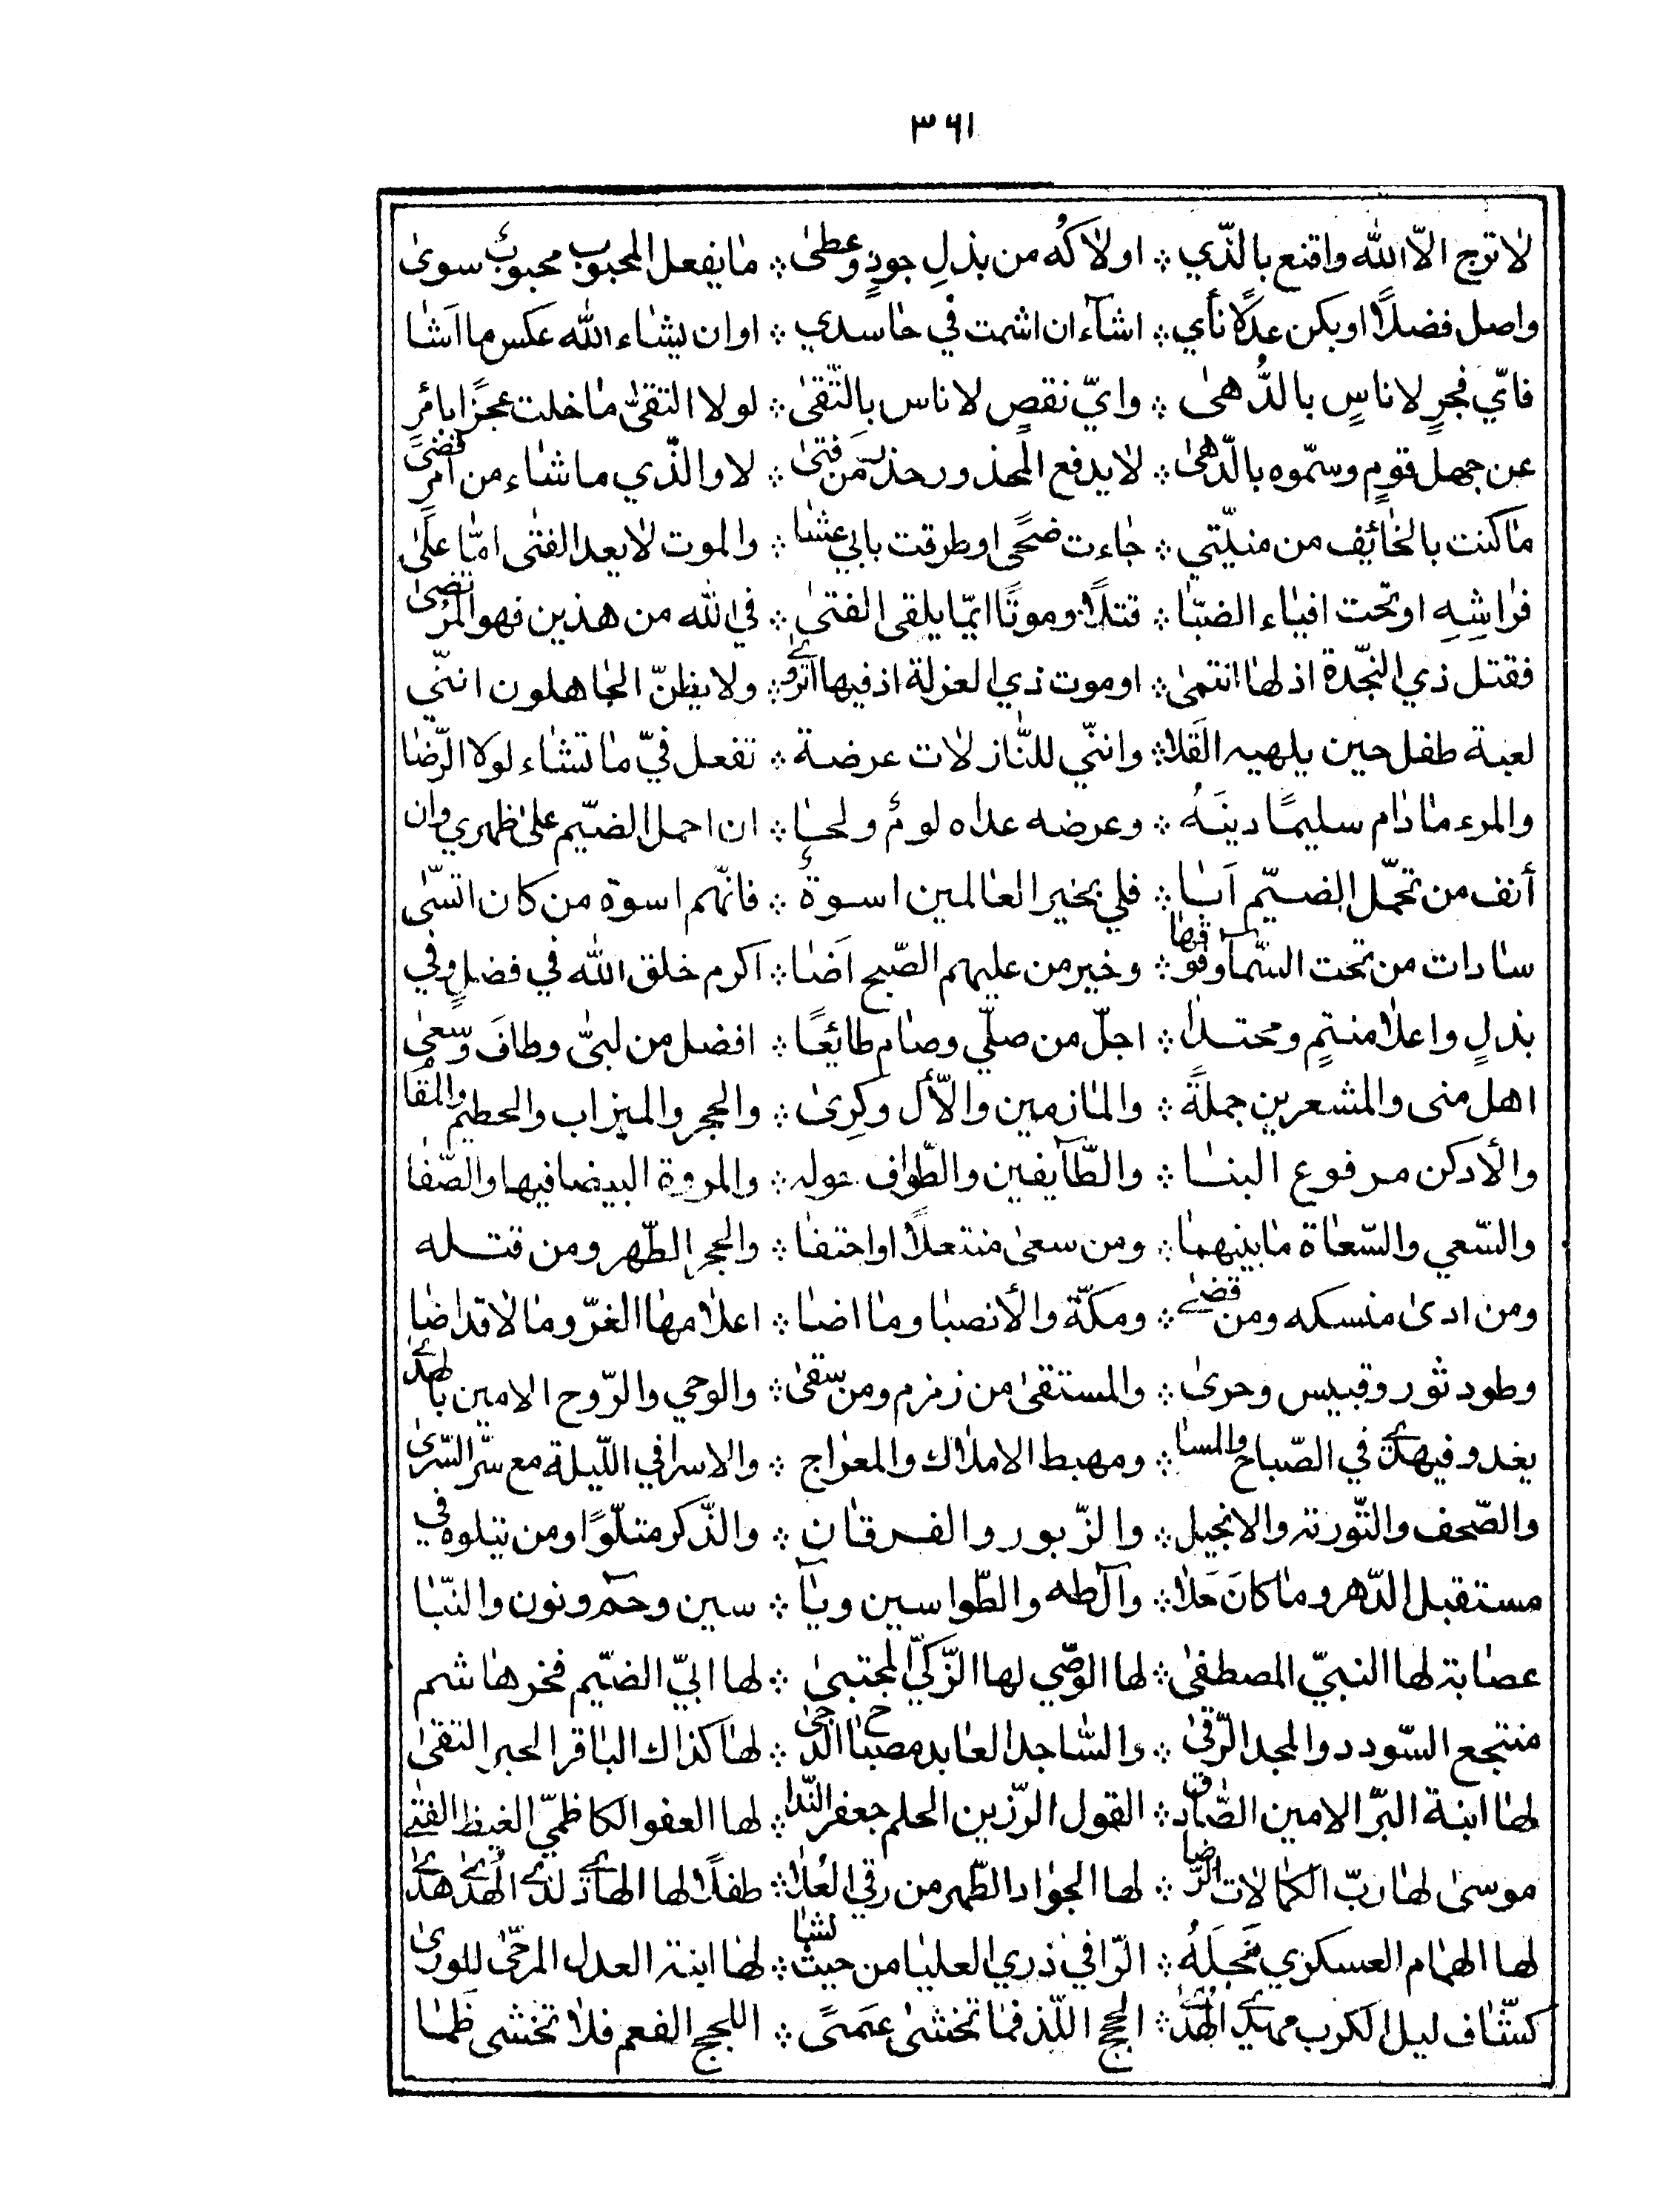 ٣٦١
لا ترج الّا الله واقنع بالّذي ⁘ اولاكه من بذلِ جودٍ وعطىٰ ⁘ ما يفعل المحبوب محبوبٌ سوىٰ
واصل فضلًا او يكن عدلًا نأي ⁘ اشآء ان اشمت في حاسدي ⁘ او ان يشاء الله عكس ما اشا
فايّ فجرٍ لاناسٍ بالدُّهىٰ ⁘ وايّ نقصٍ لاناس بالتّقىٰ ⁘ لولا التقىّٰ ما خلت عجزًا بامرٍ
عن جهل قومٍ وسمّوه بالدّهىٰ ⁘ لا يدفع المحذور حذرٌ من فتىٰ ⁘ لا والّذي ما شاء من امرٍ قضىٰ
ما كنت بالخائف من منيّتي ⁘ جاءت ضحًى او طرقت بابي عشا ⁘ والموت لا يعد الفتى امّا علىٰ
فراشِهِ او تحت افياء الضبّا ⁘ قتلًا وموتًا ايّما يلقى الفتىٰ ⁘ في الله من هذين فهو المرتضىٰ
فقتل ذي النجّدة اذ لها انتمىٰ ⁘ او موت ذي العزلة اذ فيها انزوىٰ ⁘ ولا يظنّ الجاهلون انّني
لعبة طفل حين يلهيه القلا ⁘ وانّني للنّازلات عرضة ⁘ تفعل فيّ ما تشاء لولا الرّضا
والمرء ما دام سليمًا دينَهُ ⁘ وعرضه عداه لومٌ ولحا ⁘ ان احمل الضيّم علىٰ ظهري وان
أنف من تحمّل الضيّم آبا ⁘ فلي بخير العالمين اسوةٌ ⁘ فانّهم اسوة من كان اتسّى
سادات من تحت السّما وفوقها ⁘ وخير من عليهم الصّبح اضا ⁘ اكرم خلق الله في فضلٍ وفي
بذلٍ واعلا منتمٍ ومحتدا ⁘ اجلّ من صلّي وصام طائعًا ⁘ افضل من لبىّٰ وطافَ وسعىٰ
اهل منى والمشعرين جملةً ⁘ والمازمين والأل وكرىٰ ⁘ والحجر والميزاب والحطيم والمقا
والأدكن مرفوع البنا ⁘ والطّآيفين والطّواف حوله ⁘ والمروة البيضا فيها والصّفا
والسّعي والسّعاة ما بينهما ⁘ ومن سعىٰ منتعلًا او احتفا ⁘ والحجر الطّهر ومن قتله
ومن ادىٰ منسكه ومن قضىٰ ⁘ ومكّة والأنصبا وما اضا ⁘ اعلامها الغرّ وما لاقد اضا
وطود ثور وقبيس وحرىٰ ⁘ والمستقىٰ من زمزم ومن سقىٰ ⁘ والوحي والرّوح الامين بالهدىٰ
يغدو فيهدىٰ في الصّباح والمسا ⁘ ومهبط الاملاك والمعراج ⁘ والاسرا في اللّيلة مع سرّ السّرىٰ
والصّحف والتّورته والانجيل ⁘ والزّبور والفرقان ⁘ والذّكر متلوًّا ومن يتلوه في
مستقبل الدّهر وما كانَ خلا ⁘ وآل طه والطّواسين ويآ ⁘ سين وحٓم ونون والنّبا
عصابة لها النبيّ المصطفىٰ ⁘ لها الوصّي لها الزّكيّ المجتبىٰ ⁘ لها ابيّ الضيّم فخر هاشم
منتجع السّودد والمجد الرّقىٰ ⁘ والسّاجد العابد مصباح الدّجىٰ ⁘ لها كذاك الباقر الحبر التقىٰ
لها ابنة البرّ الامين الصّادق ⁘ القول الرّزين الحلم جعفر النّدا ⁘ لها العفو الكاظميّ الغيظ الفتىٰ
موسىٰ لها ربّ الكمالات الرّضا ⁘ لها الجواد الطّهر من رقي العُلا ⁘ طفلًا لها الهادي لدىٰ الهُدىٰ هدىٰ
لها الهمام العسكري نجلهُ ⁘ الرّافي ذري العليا من حيث نشا ⁘ لها ابنة العدل المرجّىٰ للورىٰ
كشّاف ليل الكرب مهدي الهُدىٰ ⁘ الحجج اللّذ فما تخشىٰ عمىً ⁘ اللجج الفعم فلا تخشى ظما